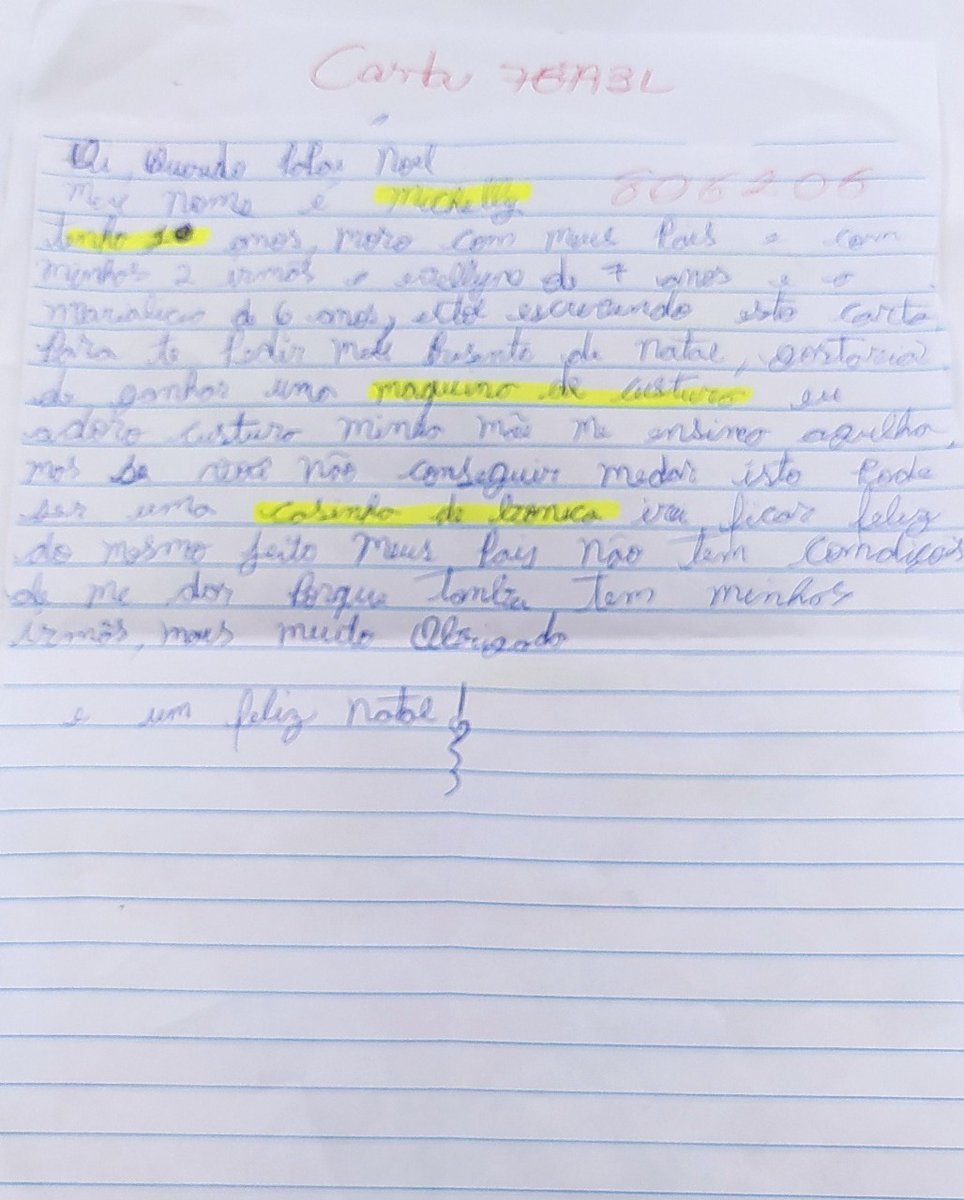 Carta 78A3L
Oi, Querido Papai Noel
Meu nome é Michelly 806206
tenho 10 anos, moro com meus Pais e com
minhas 2 irmãs a de 7 anos e a
de 6 anos, estol escrevendo esta carta
Para te Pedir meu Presente de natal, gostaria
de ganhar uma maquina de custura eu
adoro custura minha mãe me ensina agulha,
mas se você não conseguir medar isto Pode
ser uma casinha de boneca irei ficar feliz
do mesmo jeito meus Pais não tem condiçois
de me dar Porque tem minhas
irmãs, mais muido Obrigado
e um feliz natal!